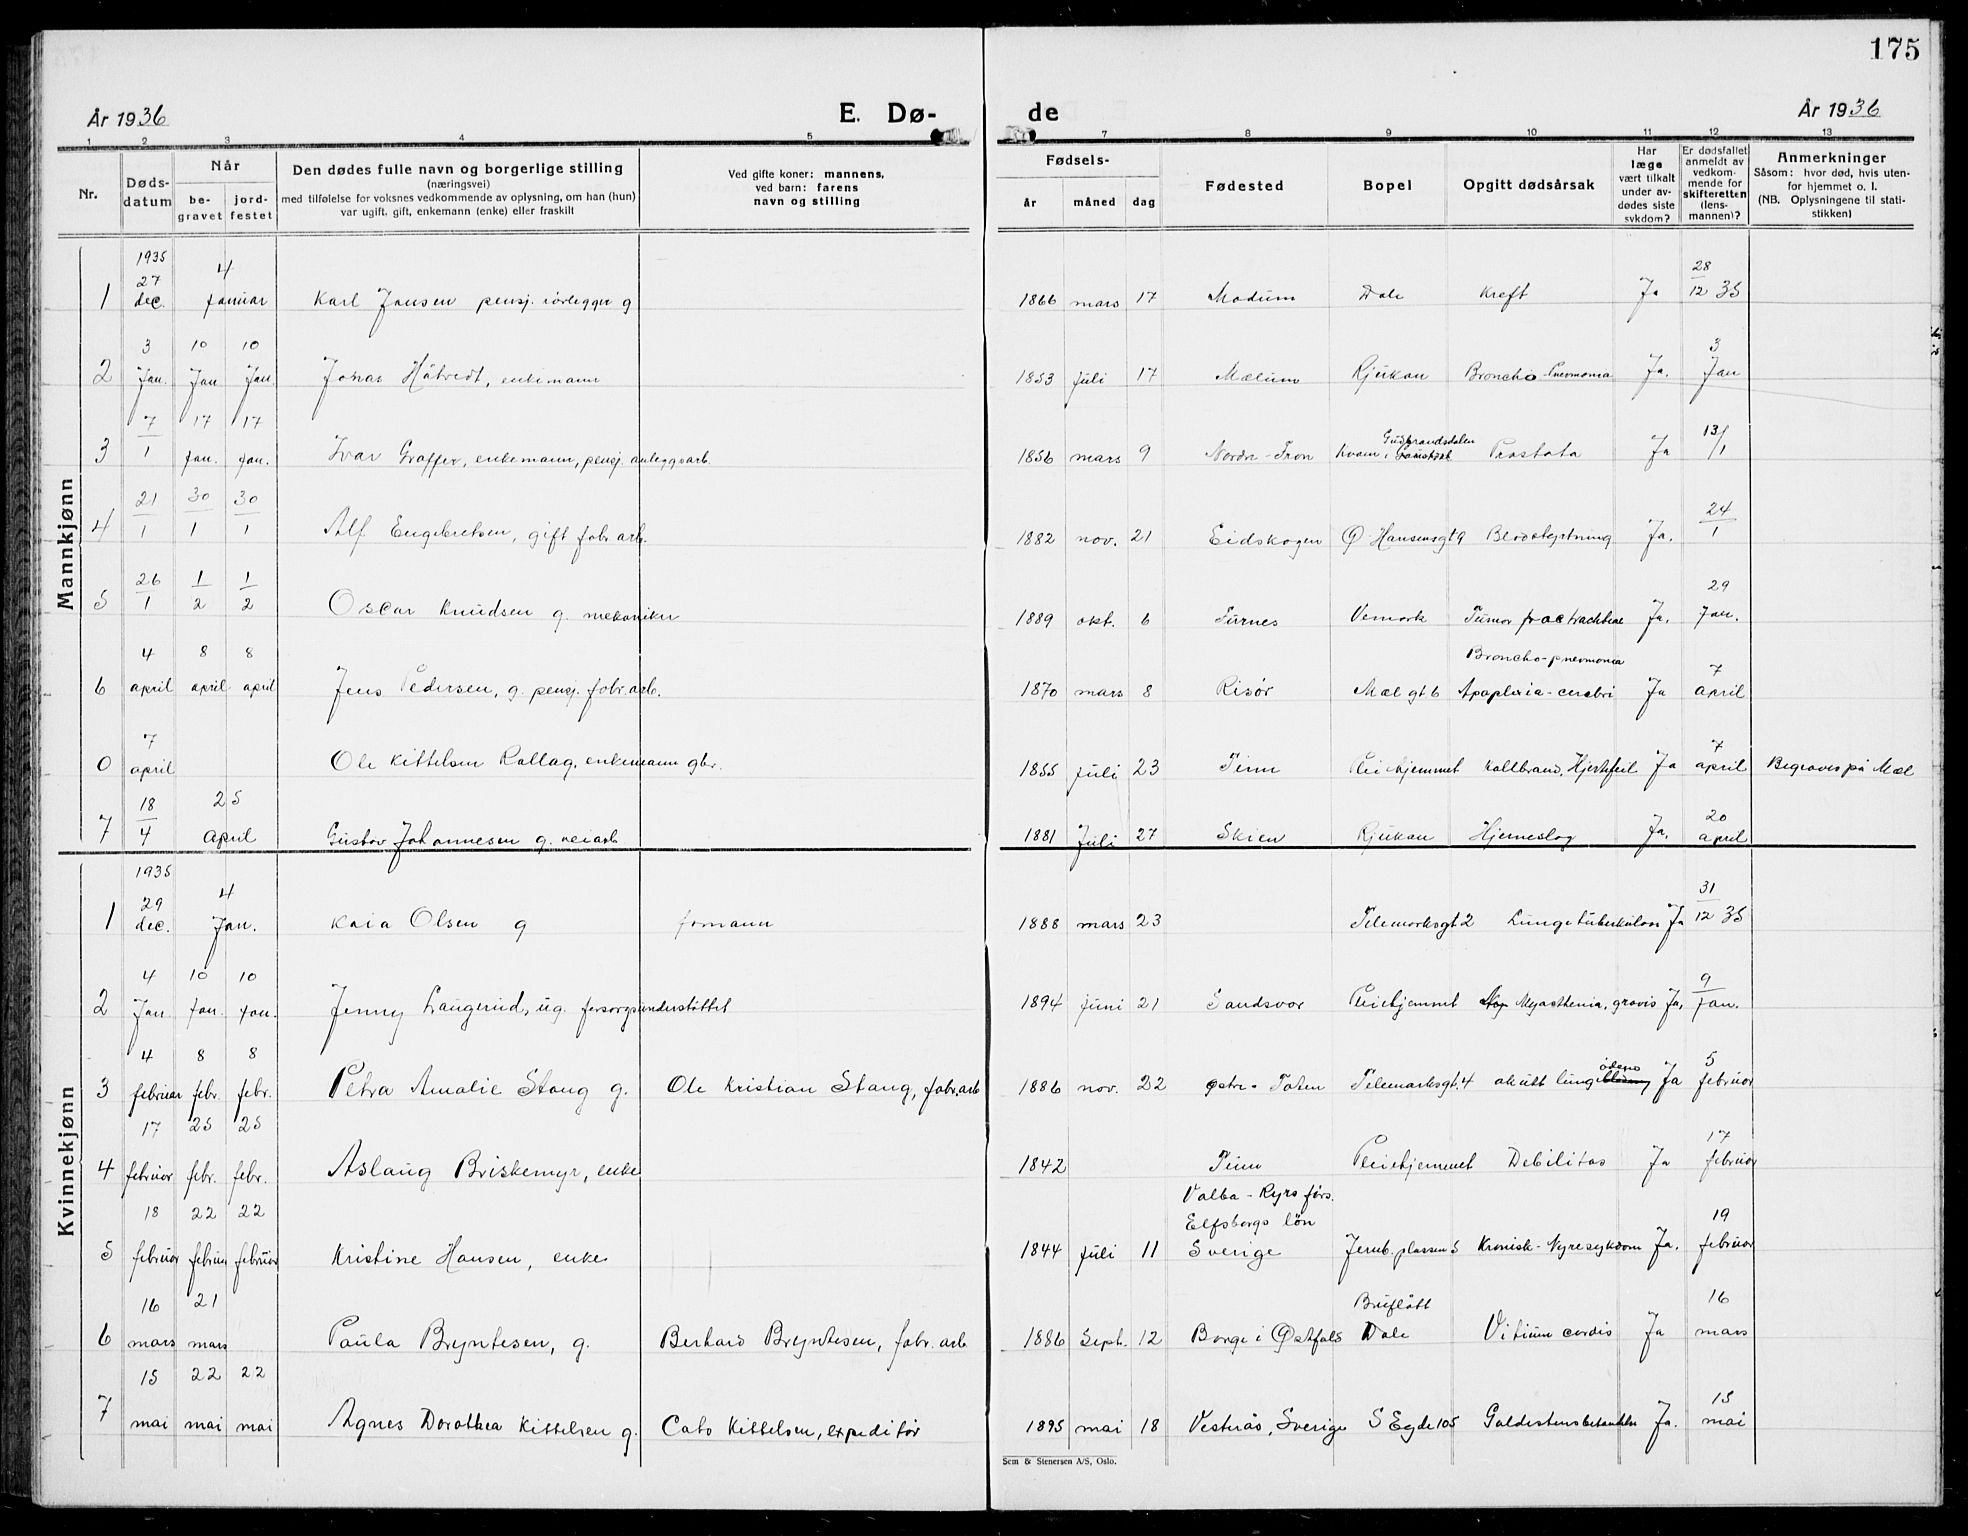 175
År 1936 E. Dø- de År 1936
1 2 3 4 5 7 8 9 10 11 12 13
Nr.
Døds-
datum
Når
be-
gravet
jord-
festet
Den dødes fulle navn og borgerlige stilling
(næringsvei)
med tilføielse for voksnes vedkommende av oplysning, om han (hun)
var ugift, gift, enkemann (enke) eller fraskilt
Ved gifte koner: mannens,
ved barn: farens
navn og stilling
Fødsels-
år måned dag
Fødested
Bopel
Opgitt dødsårsak
Har
læge
vært tilkalt
under av-
dødes siste
sykdom?
Er dødsfallet
anmeldt av
vedkom-
mende for
skifteretten
(lens-
mannen)?
Anmerkninger
Såsom: hvor død, hvis uten-
for hjemmet o. l.
(NB. Oplysningene til stati-
stikken)
Mannkjønn
1 1935 27 dec. 4 januar Karl Jansen pensj. rørlegger g 1866 mars 17 Modum Dale Kreft Ja 28/12 35
2 3 Jan. 10 Jan 10 Jan Jonas Håtvedt, enkemann 1853 juli 17 Mælum Rjukan Broncho-Pnevmonia Ja. 3 Jan
3 7/1 17 jan. 17 jan. Ivar Graffer, enkemann, pensj. anleggsarb. 1856 mars 9 Nordre-Fron Kvam i Gudbrandsdalen Prostata Ja 13/1
4 21/1 30/1 30/1 Alf Engebretsen, gift fabr.arb. 1882 nov. 21 Eidskogen Ø. Hansensgt 9 Blodstyrtning Ja. 24/1
5 26/1 1/2 1/2 Oscar Knudsen g. mekaniker 1889 okt. 6 Furnes Vemork Tumor prae trachbeae Ja. 29 Jan.
6 4 april 8 april 8 april Jens Pedersen, g. pensj. fabr.arb. 1870 mars 8 Risør Mæl gt 6 Broncho-pnevmonia Apoplexia-cerebri Ja 7 april
0 7 april Ole Kittelsen Rollag, enkemann gbr. 1855 juli 23 Tinn Pleiehjemmet Kallbrand, Hjertefeil Ja 7 april Begraves på Mæl
7 18/4 25 April Gustav Johannesen g. veiarb 1881 Juli 27 Skien Rjukan Hjerneslag Ja. 20 april
Kvinnekjønn
1 1935 29 dec. 4 Jan. Kaia Olsen g formann 1888 mars 23 Telemarksgt 2 Lungetuberkulose Ja 31/12 35
2 4 Jan. 10 jan. 10 jan. Jenny Haugerud, ug. forsorgsunderstøttet 1894 juni 21 Sandsvær Pleiehjemmet Myasthenia, gravis Ja. 9 Jan.
3 4 februar 8 febr. 8 febr. Petra Amalie Stang g. Ole Kristian Stang, fabr.arb 1886 nov. 22 Østre-Toten Telemarksgt. 4 akutt lungeödem Ja 5 februar
4 17 februar 25 febr. 25 febr. Aslaug Briskemyr, enke 1842 Tinn Pleiehjemmet Debilitas Ja 17 februar
5 18 februar 22 februar 22 februar Kristine Hansen, enke 1844 juli 11 Valba-Ryrs förs. Elfsborgs län Sverige Jernb. plassen 5 Kronisk-Nyresykdom Ja. 19 februar
6 16 mars 21 mars Paula Bryntesen, g. Berhard Bryntesen, fabr.arb 1886 Sept. 12 Borge i Østfold Bruflått Dale Vitium cordis Ja 16 mars
7 15 mai 22 mai 22 mai Agnes Dorothea Kittelsen g. Cato Kittelsen, expeditør 1895 mai 18 Vesterås, Sverige S Egde 105 Galdestensbetændelse Ja. 15 mai
Sem & Stenersen A/S, Oslo.